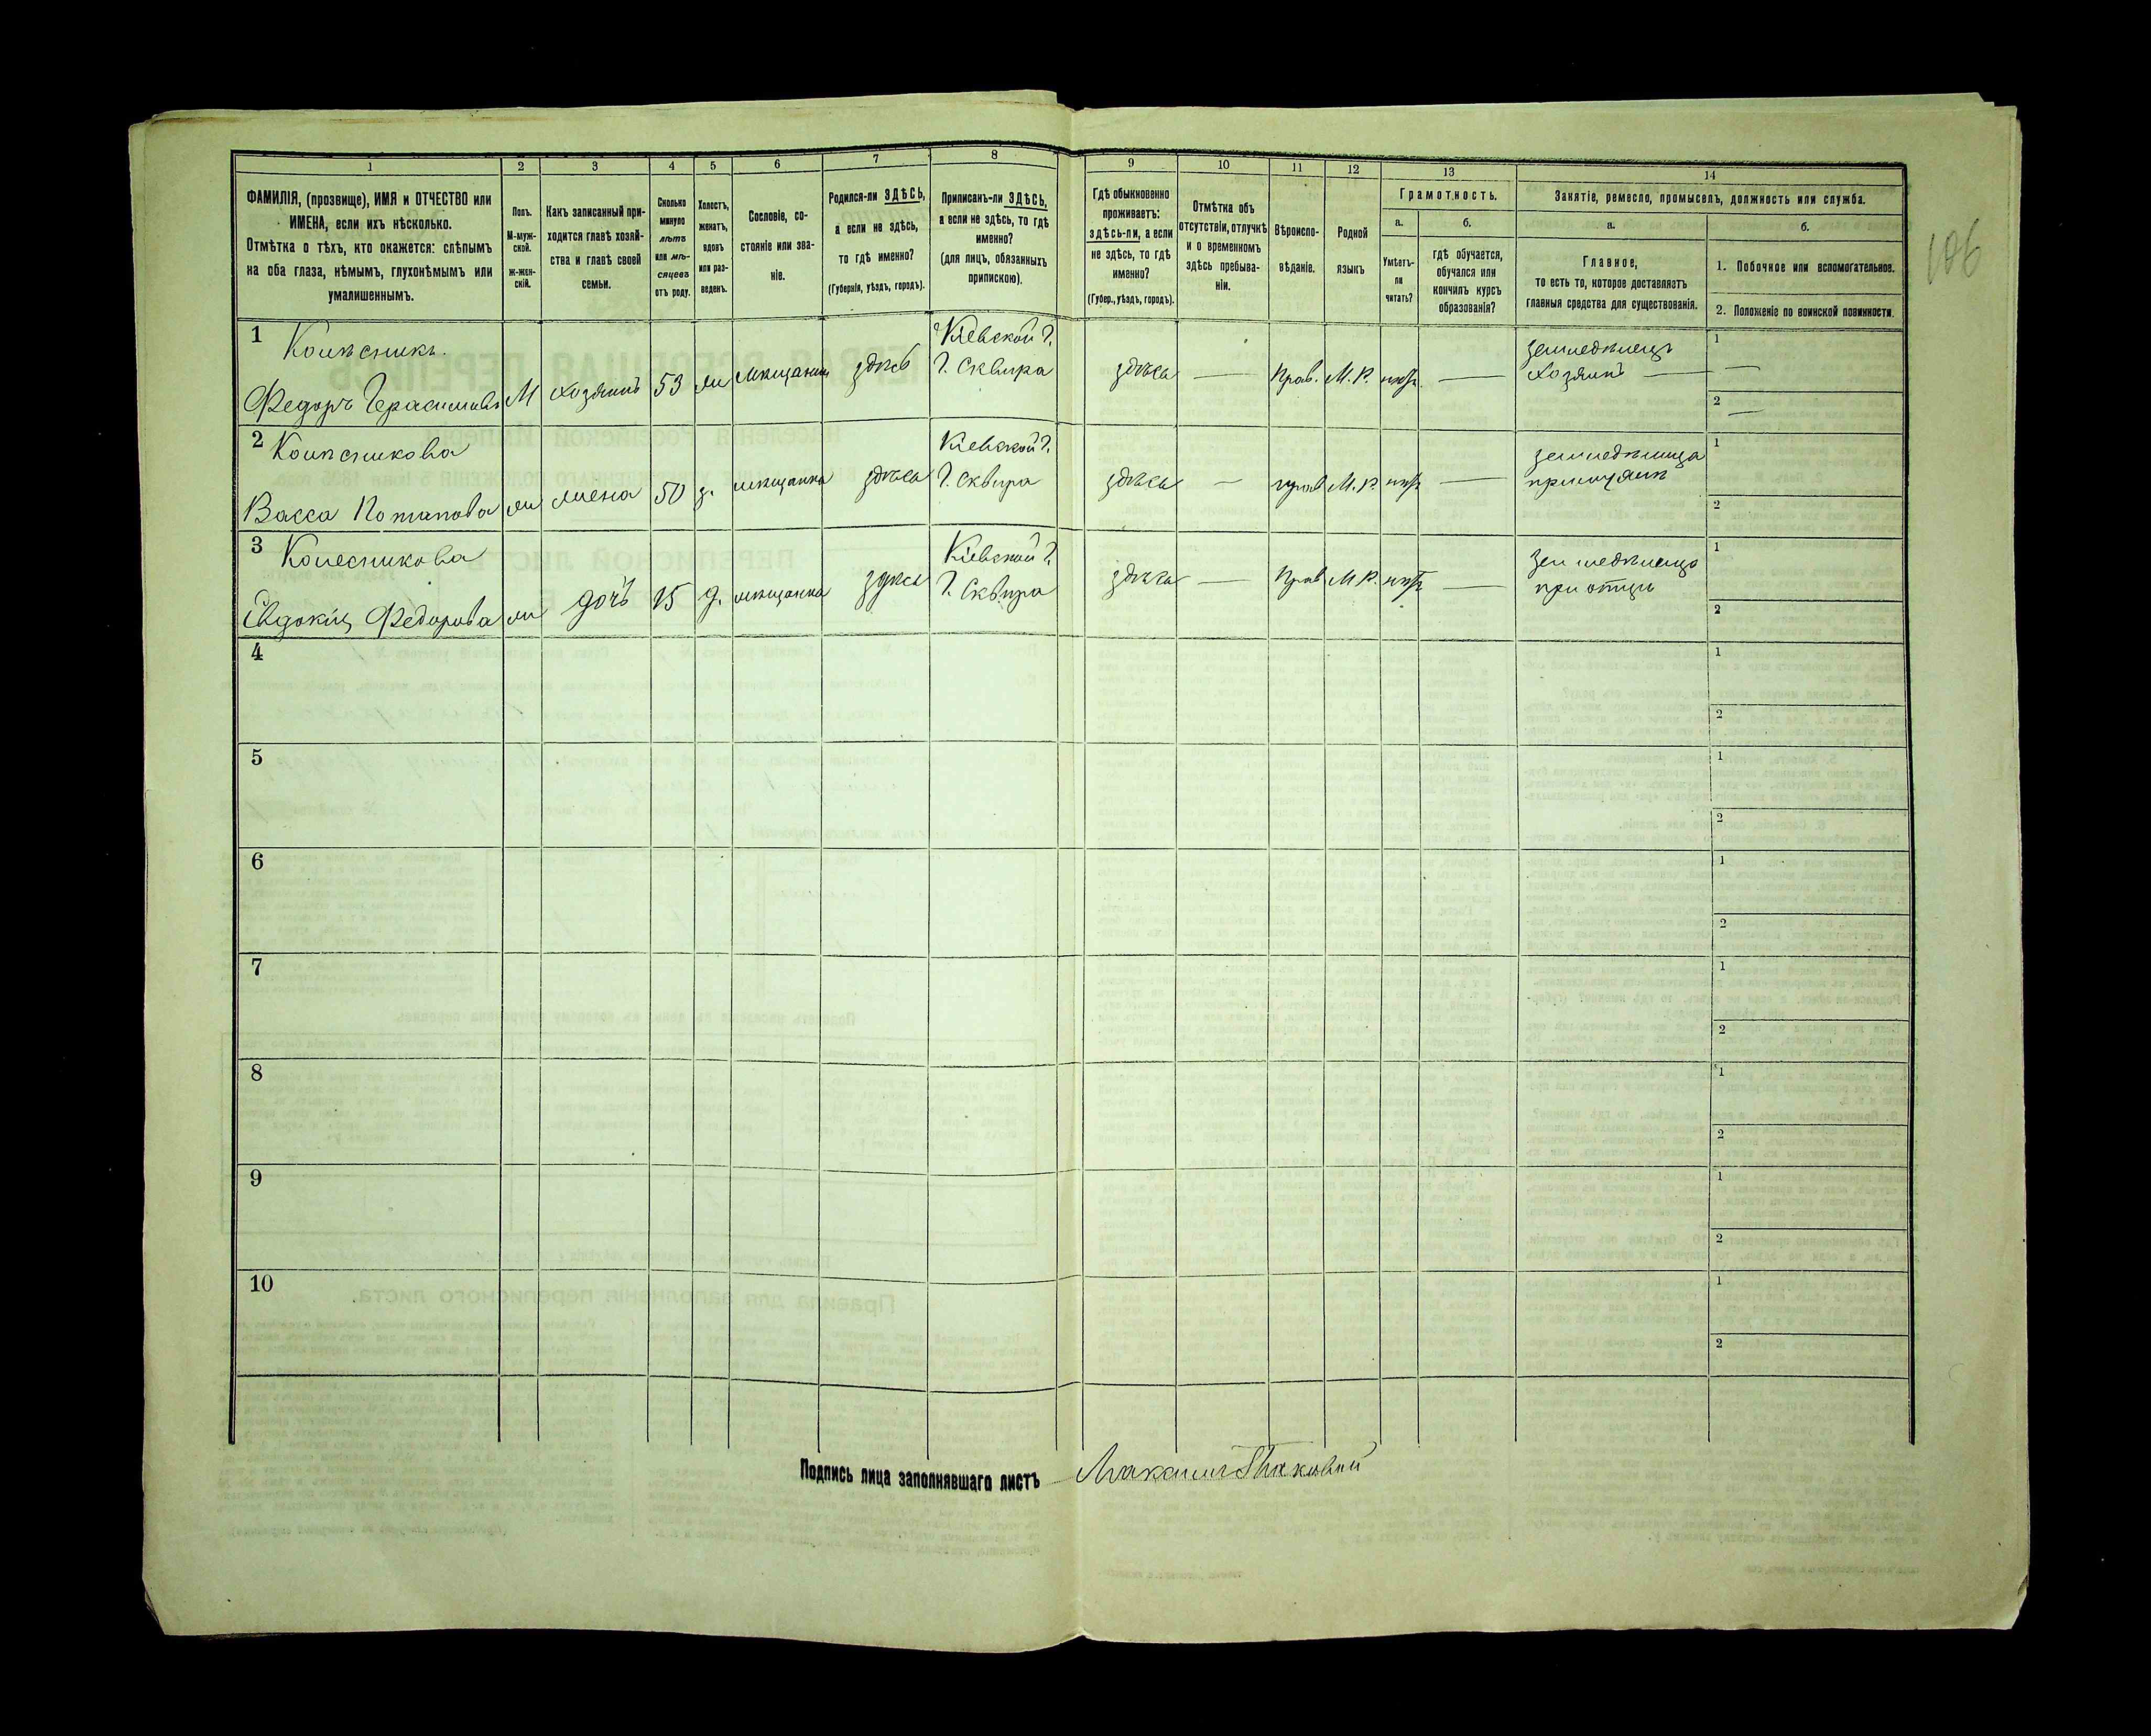 1 2 3 4 5 6 7 8 9 10 11 12 13 14
ФАМИЛІЯ, (прозвище), ИМЯ и ОТЧЕСТВО или
ИМЕНА, если ихъ нѣсколько.
Отмѣтка о тѣхъ, кто окажется: слѣпымъ
на оба глаза, нѣмымъ, глухонѣмымъ или
умалишеннымъ.
Полъ.
М-муж-
ской.
ж-жен-
скій.
Какъ записанный при-
ходится главѣ хозяй-
ства и главѣ своей
семьи.
Сколько
минуло
лѣтъ
или мѣ-
сяцевъ
отъ роду.
Холостъ,
женатъ,
вдовъ
или раз-
веденъ.
Сословіе, со-
стояніе или зва-
ніе.
Родился-ли ЗДѢСЬ,
а если не здѣсь,
то гдѣ именно?
(Губернія, уѣздъ, городъ).
Приписанъ-ли ЗДѢСЬ,
а если не здѣсь, то гдѣ
именно?
(для лицъ, обязанныхъ
припискою).
Гдѣ обыкновенно
проживаетъ:
здѣсь-ли, а если
не здѣсь, то гдѣ
именно?
(Губер., уѣздъ, городъ).
Отмѣтка объ
отсутствіи, отлучкѣ
и о временномъ
здѣсь пребыва-
ніи.
Вѣроиспо-
вѣданіе.
Родной
языкъ
Грамотность.
а.
Умѣетъ-
ли
читать?
б.
гдѣ обучается,
обучался или
кончилъ курсъ
образованія?
Занятіе, ремесло, промыселъ, должность или служба.
а.
Главное,
то есть то, которое доставляетъ
главныя средства для существованія.
б.
1. Побочное или вспомогательное.
2. Положеніе по воинской повинности.
106
1 Колѣсникъ
Федоръ Герасимовъ М хозяинъ 53 мѣщанинъ здѣсь
Кіевской г.
г. Сквира
здѣсь — Прав. М. Р. —
земледѣлецъ
хозяинъ —
1 —
2 —
2 Колѣсникова
Васса Потапова жена 50 з. мѣщанка здѣсь
Кіевской г.
г. Сквира
здѣсь — прав М. Р. —
1
2
3 Колесникова
Евдокія Федорова дочь 15 д. мѣщанка здѣсь
Кіевской г.
г. Сквира
здѣсь — Прав М. Р. —
при отцѣ
1
2
4
1
2
5
1
2
6
1
2
7
1
2
8
1
2
9
1
2
10
1
2
Подпись лица заполнявшаго листъ